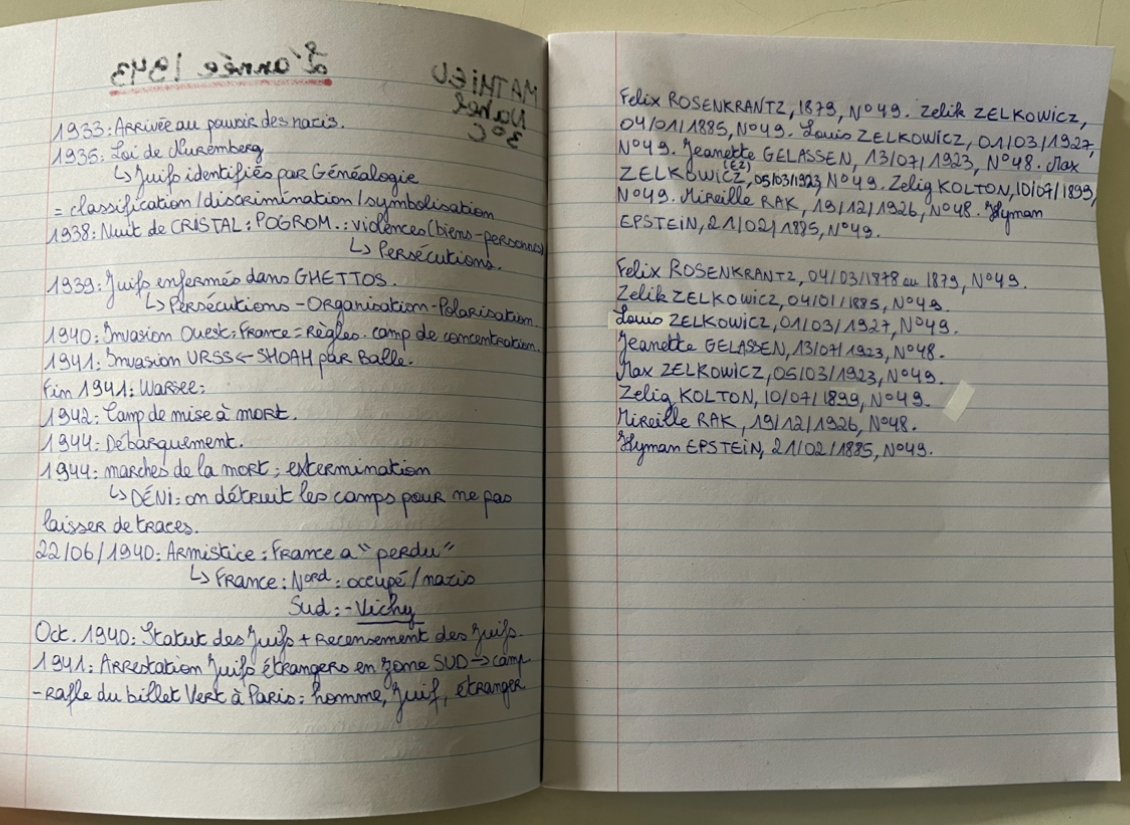 L'année 1943
MATHIEU
3°C
1933: Arrivée au pouvoir des nazis.
1935: Loi de Nuremberg
↳ Juifs identifiés par Généalogie
= classification / discrimination / symbolisation
1938: Nuit de CRISTAL: POGROM.: violences (biens-personnes)
↳ Persécutions.
1939: Juifs enfermés dans GHETTOS.
↳ Persécutions - Organisation - Polarisation.
1940: Invasion Ouest: France = Règles. camp de concentration.
1941: Invasion URSS ← SHOAH par Balle.
Fin 1941:
1942: Camp de mise à mort.
1944: Débarquement.
1944: marches de la mort; extermination
↳ DÉNI: on détruit les camps pour ne pas
laisser de traces.
22/06/1940: Armistice: France a "perdu"
↳ France: Nord: occupé/nazis
Sud: - Vichy
Oct. 1940: Statut des Juifs + Recensement des Juifs.
1941: Arrestation Juifs étrangers en zone SUD → camp
- Rafle du billet Vert à Paris: homme, Juif, étranger
Felix ROSENKRANTZ, 1879, N°49. Zelik ZELKOWICZ,
04/01/1885, N°49. Louis ZELKOWICZ, 01/03/1927,
N°49. Jeanette GELASSEN, 13/07/1923, N°48. Max
ZELKOWICZ, (EZ) 05/03/1923, N°49. Zelig KOLTON, 10/07/1899,
N°49. Mireille RAK, 19/12/1926, N°48. Hyman
EPSTEIN, 21/02/1885, N°49.
Felix ROSENKRANTZ, 04/03/1878 ou 1879, N°49.
Zelik ZELKOWICZ, 04/01/1885, N°49.
Louis ZELKOWICZ, 01/03/1927, N°49.
Jeanette GELASSEN, 13/07/1923, N°48.
Max ZELKOWICZ, 05/03/1923, N°49.
Zelig KOLTON, 10/07/1899, N°49.
Mireille RAK, 19/12/1926, N°48.
Hyman EPSTEIN, 21/02/1885, N°49.